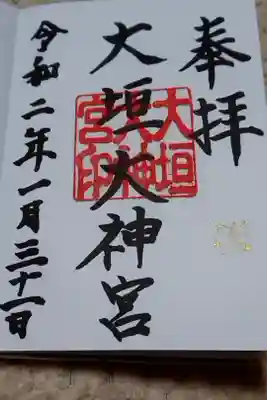 奉拝
大垣大神宮
大垣大神宮印
令和二年一月三十一日